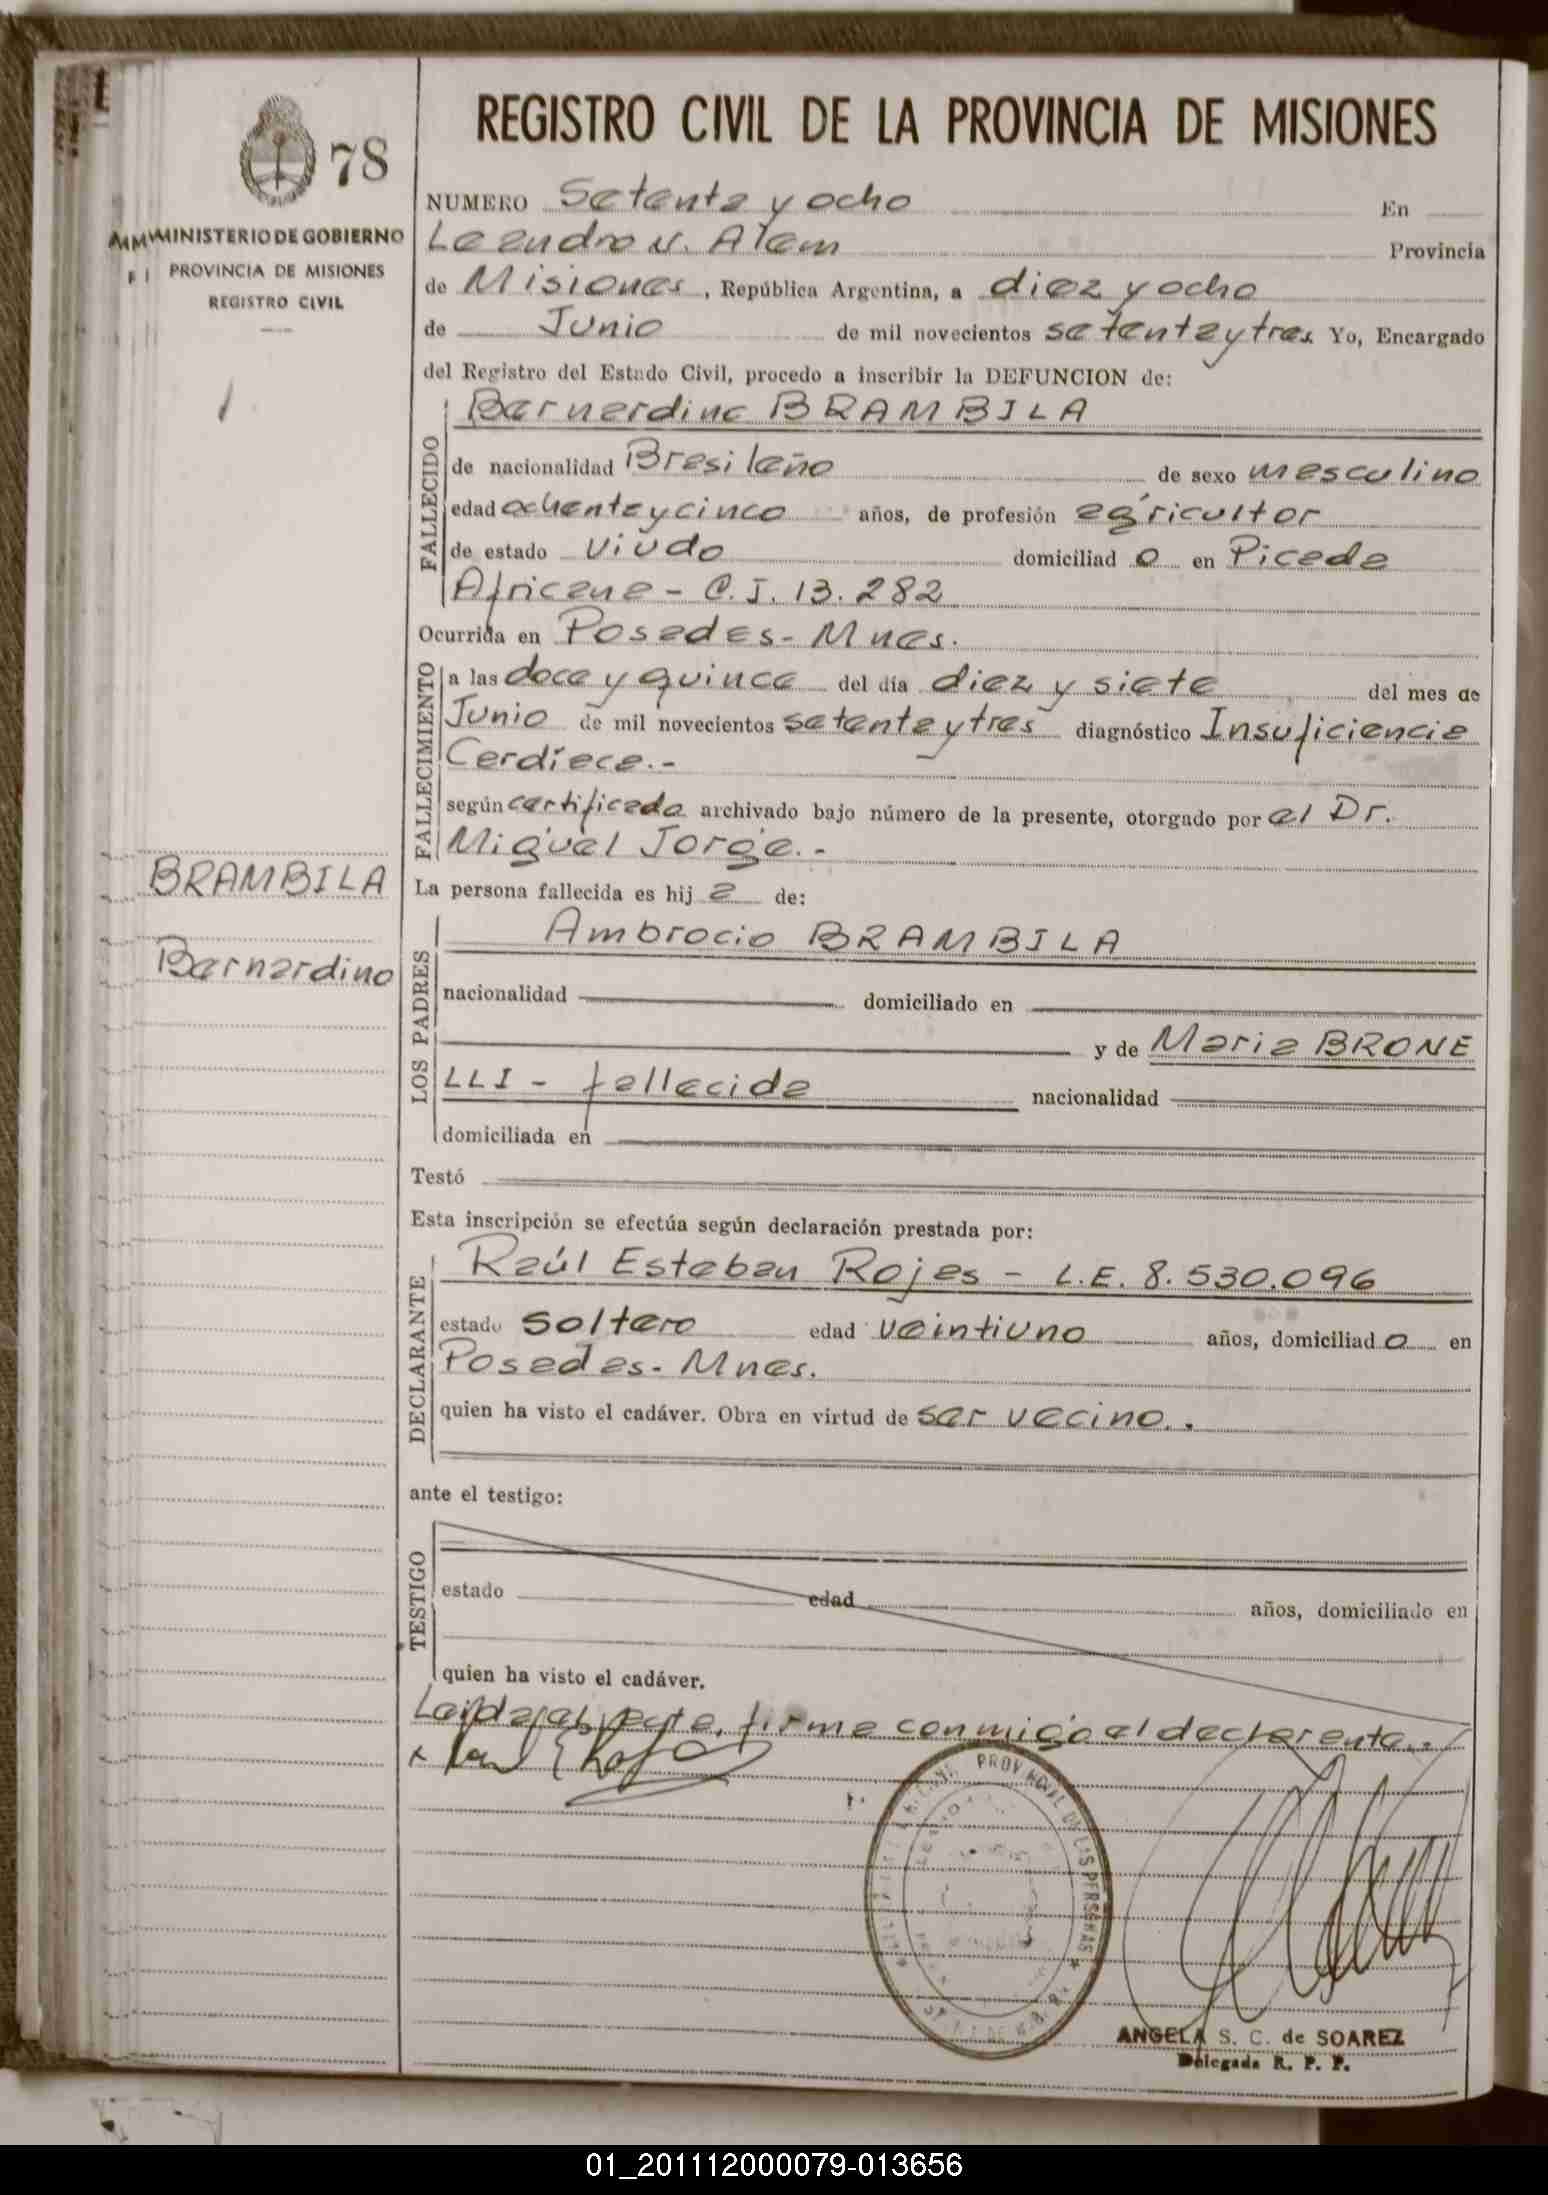 78
MINISTERIO DE GOBIERNO
PROVINCIA DE MISIONES
REGISTRO CIVIL
REGISTRO CIVIL DE LA PROVINCIA DE MISIONES
NUMERO Setenta y ocho En
Leandro N. Alem Provincia
de Misiones, República Argentina, a diez y ocho
de Junio de mil novecientos setenta y tres Yo, Encargado
del Registro del Estado Civil, procedo a inscribir la DEFUNCION de:
FALLECIDO
Bernardino BRAMBILA
de nacionalidad Brasileño de sexo masculino
edad ochenta y cinco años, de profesión agricultor
de estado viudo domiciliado en Picada
Africana - C.I. 13.282
Ocurrida en Posadas - Mnes.
FALLECIMIENTO
a las doce y quince del día diez y siete del mes de
Junio de mil novecientos setenta y tres diagnóstico Insuficiencia
Cardíaca.-
según certificado archivado bajo número de la presente, otorgado por el Dr.
Miguel Jorge.-
La persona fallecida es hij a de:
LOS PADRES
Ambrocio BRAMBILA
nacionalidad domiciliado en
y de Maria BRONE
LLI - fallecida nacionalidad
domiciliada en
Testó
Esta inscripción se efectúa según declaración prestada por:
DECLARANTE
Raúl Esteban Rojas - L.E. 8.530.096
estado soltero edad veintiuno años, domiciliado en
Posadas - Mnes.
quien ha visto el cadáver. Obra en virtud de ser vecino..
ante el testigo:
TESTIGO
estado edad años, domiciliado en
quien ha visto el cadáver.
Leída el acta, firma conmigo el declarante..
BRAMBILA
Bernardino
PROVINCIAL DE LAS PERSONAS
ANGELA S. C. de SOAREZ
Delegada R. P. P.
01_201112000079-013656